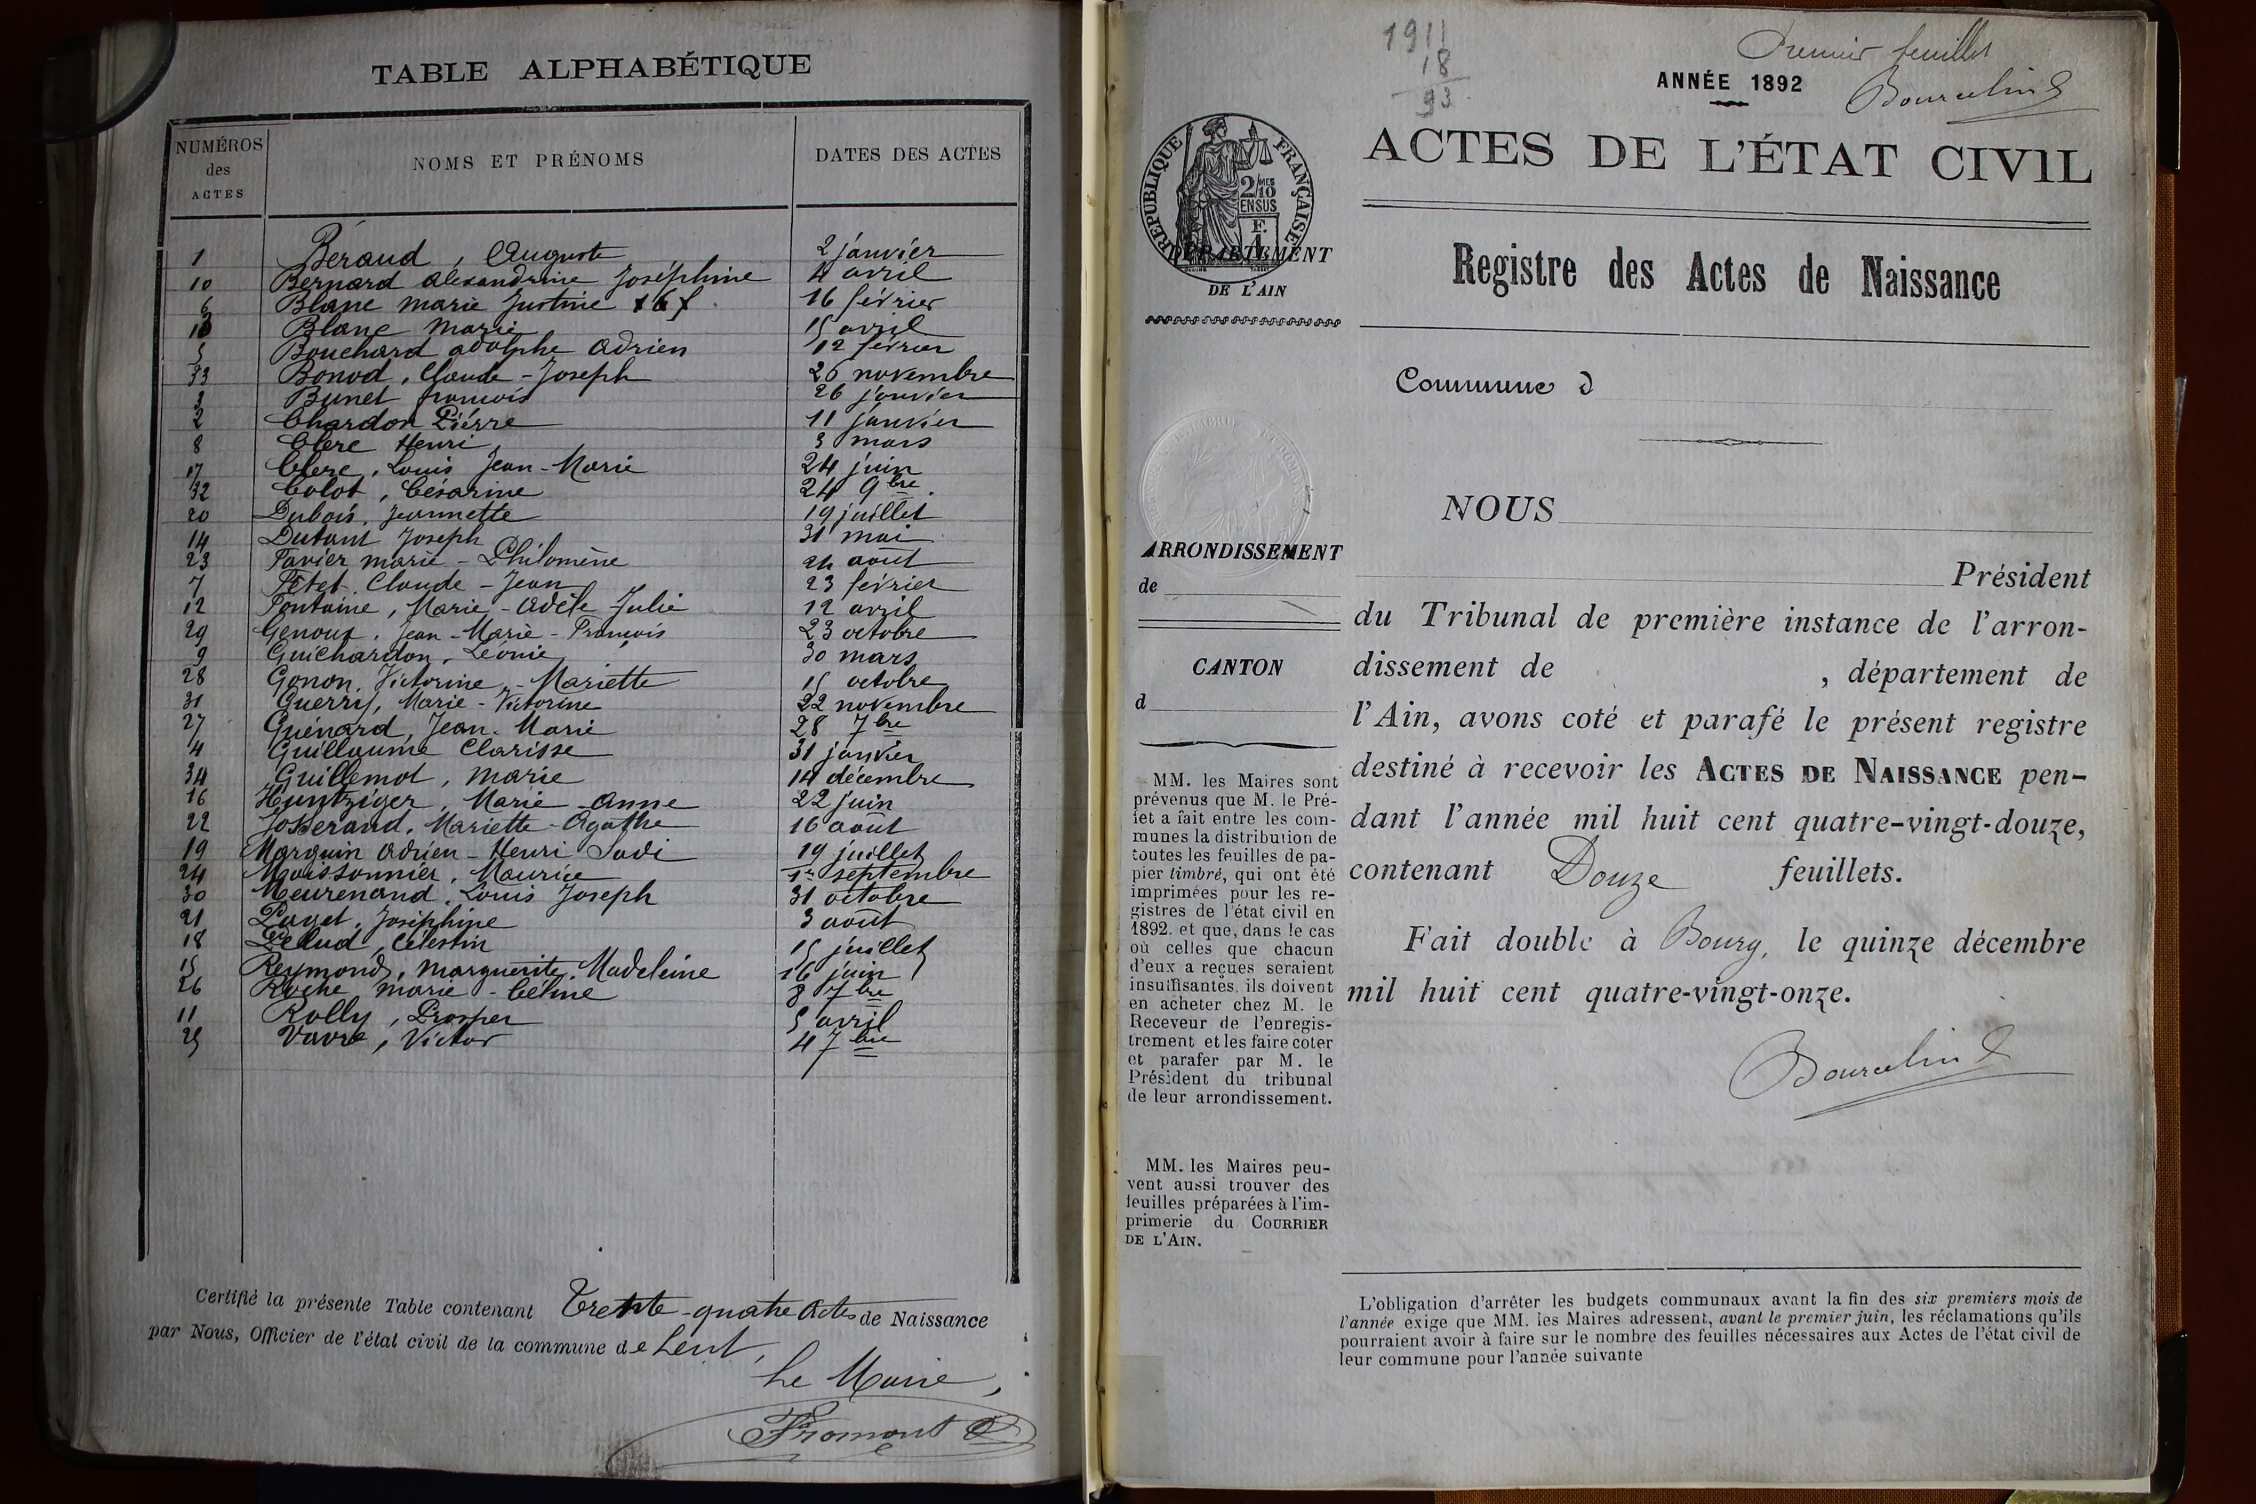 TABLE ALPHABÉTIQUE
NUMÉROS des ACTES
NOMS ET PRÉNOMS
DATES DES ACTES
1 Béraud, Auguste 2 janvier
10 Bernard Alexandrine Joséphine 4 avril
6 Blanc Marie Justine 16 février
13 Blanc Marie 15 avril
5 Bouchard Adolphe Adrien 12 février
33 Bonod, Claude-Joseph 26 novembre
3 Bunet François 26 janvier
2 Chardon Pierre 11 janvier
8 Clerc Henri 3 mars
17 Clerc, Louis Jean-Marie 24 juin
32 Colot, Césarine 24 9bre
20 Dubois, Jeannette 19 juillet
14 Dutant Joseph 31 mai
23 Favier Marie-Philomène 24 août
7 Fétet Claude-Jean 23 février
12 Fontaine, Marie-Adèle Julie 12 avril
29 Genoux, Jean-Marie-François 23 octobre
9 Guichardon, Léonie 30 mars
28 Gonon, Victorine-Mariette 15 octobre
31 Guerry, Marie-Victorine 22 novembre
27 Guénard, Jean-Marie 28 7bre
4 Guillaume Clarisse 31 janvier
34 Guillemot, Marie 14 décembre
16 Huntziger, Marie-Anne 22 juin
22 Josserand, Mariette-Agathe 16 août
19 Marquin Adrien-Henri Sadi 19 juillet
24 Moissonnier, Maurice 1er septembre
30 Meurenand, Louis Joseph 31 octobre
21 Paget, Joséphine 3 août
18 Célestin 15 juillet
15 Reymond, Marguerite, Madeleine 16 juin
26 Roche Marie-Céline 8 7bre
11 Rolly, Prosper 5 avril
25 Vavre, Victor 4 7bre
Certifié la présente Table contenant Trente-quatre Actes de Naissance
par Nous, Officier de l'état civil de la commune de Lent,
Le Maire,
Fromont
1911
18
93
Premier feuillet
ANNÉE 1892
Bourcelin
ACTES DE L'ÉTAT CIVIL
RÉPUBLIQUE FRANÇAISE
2/10 MES
EN SUS
F.
1
DÉPARTEMENT
DE L'AIN
Registre des Actes de Naissance
Commune d
NOUS
ARRONDISSEMENT
de
Président
du Tribunal de première instance de l'arron-
dissement de , département de
l'Ain, avons coté et parafé le présent registre
destiné à recevoir les ACTES DE NAISSANCE pen-
dant l'année mil huit cent quatre-vingt-douze,
contenant Douze feuillets.
Fait double à Bourg, le quinze décembre
mil huit cent quatre-vingt-onze.
Bourcelin
CANTON
d
MM. les Maires sont
prévenus que M. le Pré-
fet a fait entre les com-
munes la distribution de
toutes les feuilles de pa-
pier timbré, qui ont été
imprimées pour les re-
gistres de l'état civil en
1892. et que, dans le cas
où celles que chacun
d'eux a reçues seraient
insuffisantes, ils doivent
en acheter chez M. le
Receveur de l'enregis-
trement et les faire coter
et parafer par M. le
Président du tribunal
de leur arrondissement.
MM. les Maires peu-
vent aussi trouver des
feuilles préparées à l'im-
primerie du COURRIER
DE L'AIN.
L'obligation d'arrêter les budgets communaux avant la fin des six premiers mois de
l'année exige que MM. les Maires adressent, avant le premier juin, les réclamations qu'ils
pourraient avoir à faire sur le nombre des feuilles nécessaires aux Actes de l'état civil de
leur commune pour l'année suivante